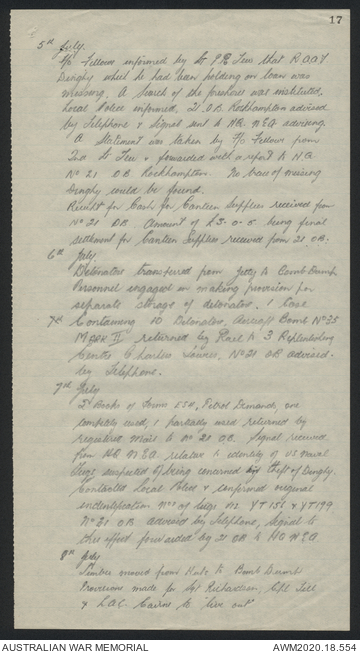 17
5th July.
F/O Fellow informed by Lt P.R. that RAAF
Dinghy which he had been holding on loan was
missing. A search of the foreshore was instituted,
Local Police informed, 21 O.B. Rockhampton advised
by Telephone & Signal sent to HQ. NEA advising.
A Statement was taken by F/O Fellow from
2nd Lt & forwarded with a report to HQ
No 21 OB Rockhampton. No trace of missing
Dinghy could be found.
Receipt for Cash for Canteen Supplies received from
No 21 OB Amount of £3-0-5 being final
settlement for Canteen Supplies received from 21 OB.
6th July.
Detonators transferred from Jetty to Bomb Dump
Personnel engaged in making provision for
separate storage of detonators. 1 Case
7th Containing 10 Detonators, Aircraft Bomb No 35
Mark II returned by Rail to 3 Replenishing
Centre Charters Towers, No 21 OB advised
by Telephone.
7th July
2 Books of Forms E54, Petrol Demands, one
completely used, 1 partially used returned by
registered Mail to No 21 OB. Signal received
from HQ NEA. relative to identity of US Naval
Tugs suspected of being concerned theft of Dinghy.
Contacted Local Police & confirmed original
identification Nos of tugs as YT 156 & YT 199
No 21 OB advised by Telephone, Signal to
this effect forwarded by 21 OB to HQ NEA
8th July
Timber moved from Huts to Bomb Dump
Provisions made for Sgt Richardson, Cpl
& LAC. Cairns to "live out"
AUSTRALIAN WAR MEMORIAL
AWM2020.18.554